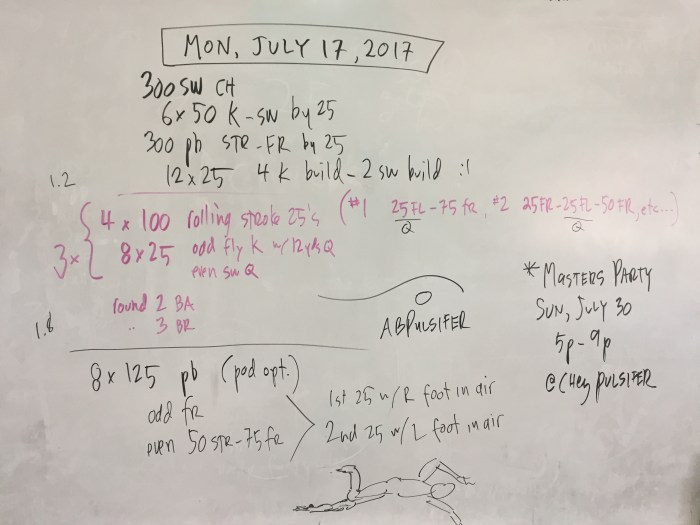 MON, JULY 17, 2017
300 SW CH
6x50 K-SW by 25
300 pb STR-FR by 25
12x25 4 K build-2 sw build :1
1.2
3x { 4 x 100 rolling stroke 25's (#1 25 FL-75 FR, #2 25 FR-25 FL-50 FR, etc...)
Q Q
8 x 25 odd fly K w/ 12 yds Q
even sw Q
round 2 BA
" 3 BR
1.8
ABPULSIFER
* MASTERS PARTY
SUN, JULY 30
5p-9p
@ CHEZ PULSIFER
8 x 125 pb (pod opt.)
odd fr
even 50 STR-75 fr
1st 25 w/ R foot in air
2nd 25 w/ L foot in air